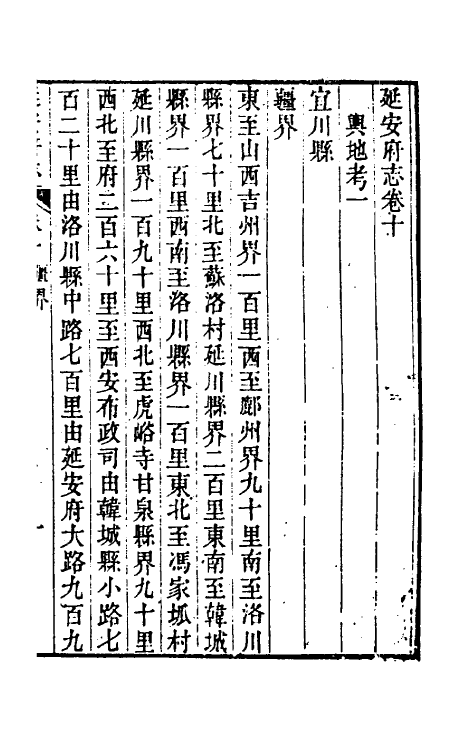 延安府志卷十
輿地考一
宜川縣
疆界
東至山西吉州界一百里西至鄜州界九十里南至洛川
縣界七十里北至蘇洛村延川縣界二百里東南至韓城
縣界一百里西南至洛川縣界一百里東北至馮家坬村
延川縣界一百九十里西北至虎峪寺甘泉縣界九十里
西北至府二百六十里至西安布政司由韓城縣小路七
百二十里由洛川縣中路七百里由延安府大路九百九
疆界
一